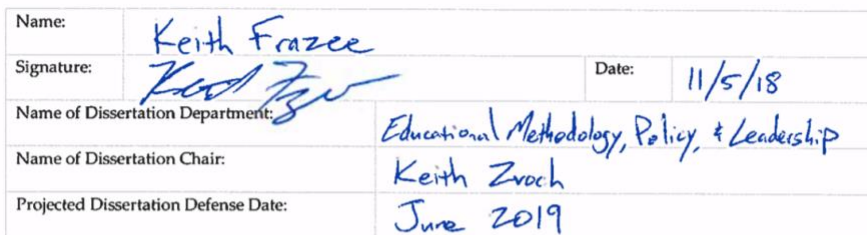 Name: Keith Frazee
Signature: Date: 11/5/18
Name of Dissertation Department: Educational Methodology, Policy, & Leadership
Name of Dissertation Chair: Keith Zvoch
Projected Dissertation Defense Date: June 2019